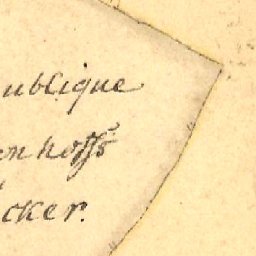 ublique
en hoffs
cker.